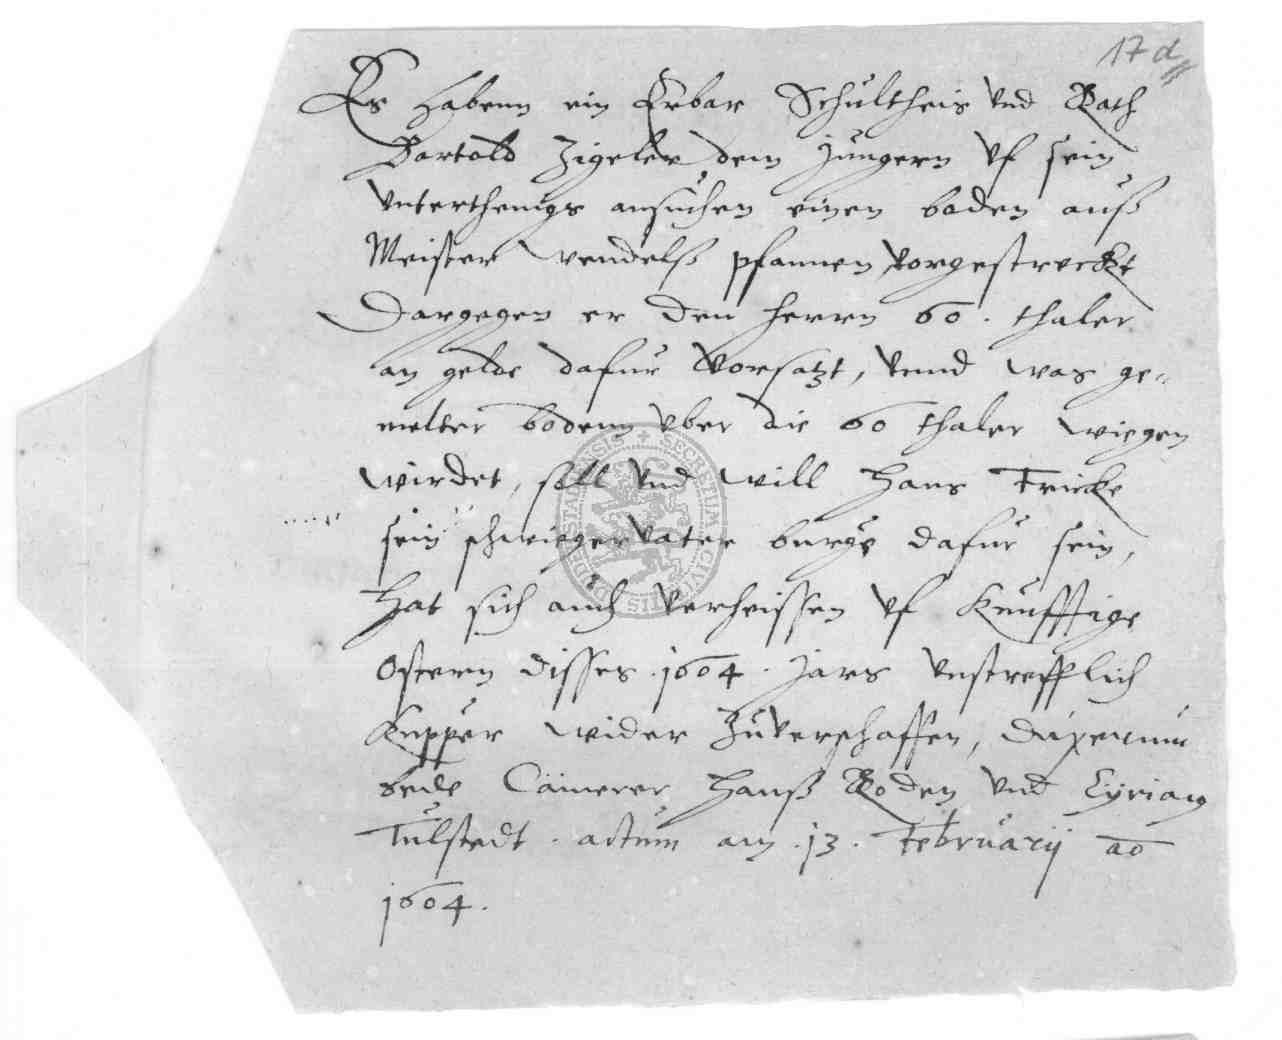 17 d
Es habenn ein Erbar Schultheis vnd Rath
Bartold Zigeler dem jungern vf sein
vnterthenigs ansuchen einen boden auß
Meister Wendelß pfannen vorgestreckt
Dargegen er den herrn 60. thaler
an gelde dafur vorsatzt, vnnd was ge-
melter bodenn vber die 60 thaler wiegen
wirdet, soll vnd will Hans Fricke
sein schwiegervater burge dafur sein,
Hat sich auch verheissen vf Kunfftige
Ostern disses .1604. jars vnstrefflich
Kupper wider zuverschaffen,
bede Camerer Hanß Roden vnd Cyriacy
Tulstedt. actum am .13. Februarij ao
1604.
SECRETUM CIVITATIS